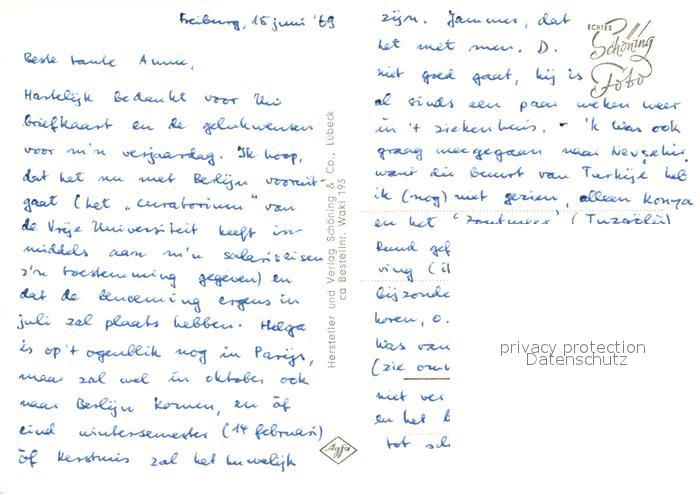 Freiburg, 15 juni '69
Beste tante Anne,
Hartelijk bedankt voor Uw
briefkaart en de gelukwensen
voor m'n verjaardag. Ik hoop,
dat het nu met Berlijn vooruit-
gaat (het "curatorium" van
de Vrije Universiteit heeft in-
middels aan m'n salariseisen
z'n toestemming gegeven) en
dat de benoeming ergens in
juli zal plaats hebben. Helga
is op't ogenblik nog in Parijs,
maar zal wel in oktober ook
naar Berlijn komen, en óf
eind wintersemester (14 februari)
óf Kerstmis zal het huwelijk
zijn. Jammer, dat
het met men. D.
niet goed gaat, hij is
al sinds een paar weken weer
in 't ziekenhuis. - 'k Was ook
graag meegegaan naar Nevşehir.
want die buurt van Turkije heb
ik (nog) niet gezien, alleen Konya
en het "zoutmeer" (Tuzgölü)
Rond gef
ving (i
bijzonde
horen, o.
was van
(zie om
niet ver
en het b
tot sch
ECHTES
Schöning
Foto
Hersteller und Verlag Schöning & Co., Lübeck
ca Bestellnr. Waki 195
Agfa
privacy protection
Datenschutz